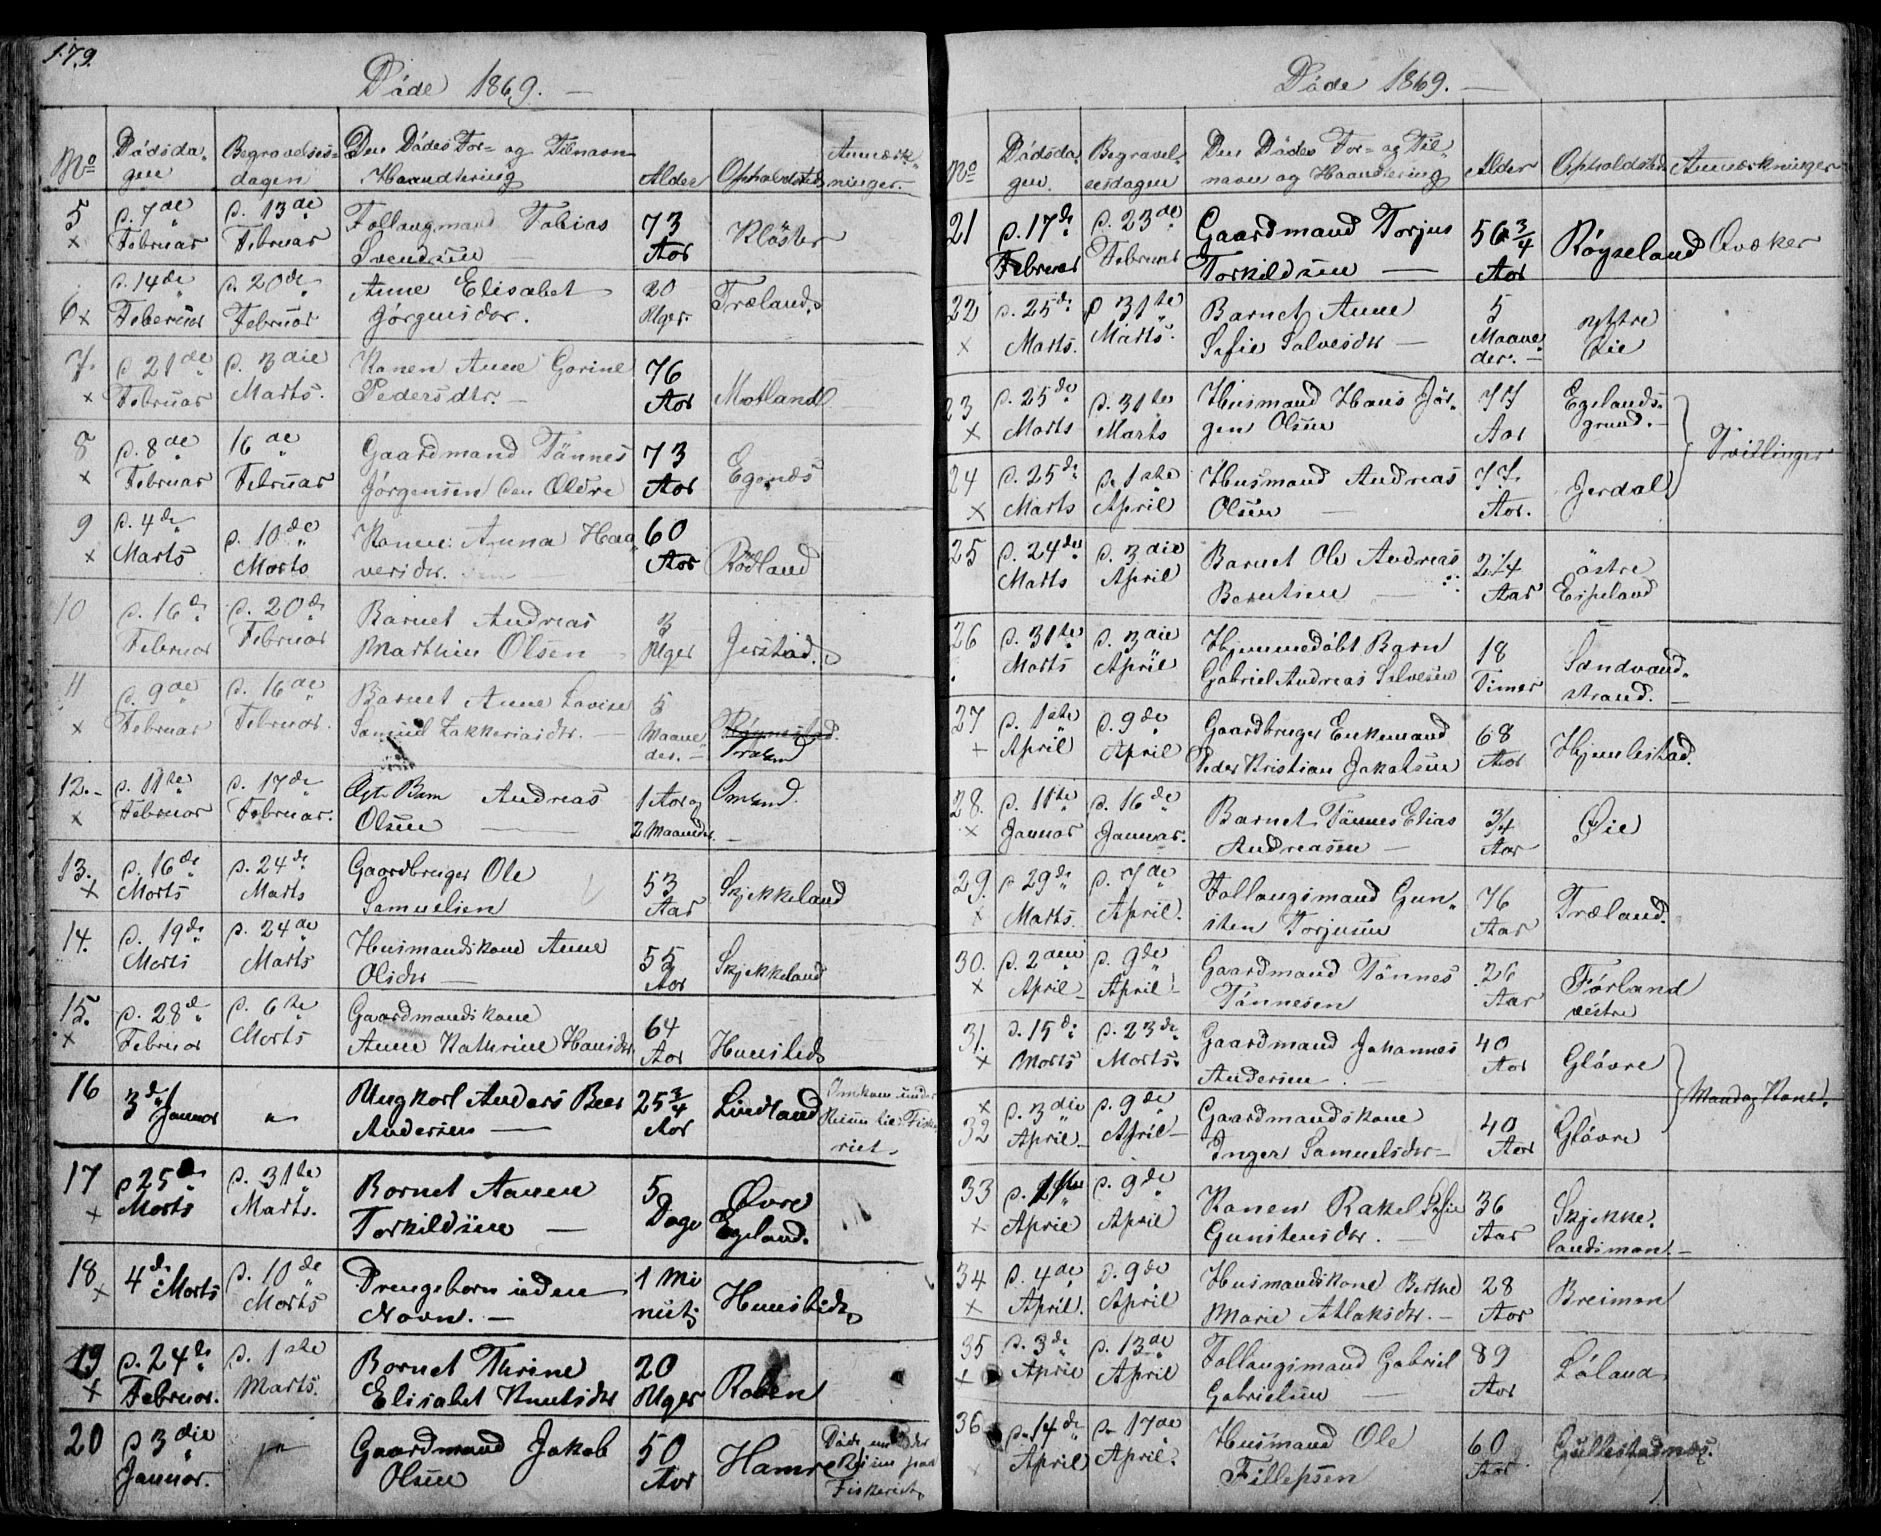 179.
Døde 1869.
No
Dødsda-
gen
Begravelses-
dagen
Den Dødes For- og Tilnavn
Haandtering
Alder
Opholdsted
Anmærk-
ninger.
5 × d. 7de Februar d. 13de Februar Follaugmand Tobias Svendsen 73 Aar Kløster
6 × d. 14de Feberuar d. 20de Februar Anne Elisabet Jørgensdtr. 20 Uger. Træland.
7. × d 21de Februar d. 3die Marts. Konen Anne Gorine Pedersdtr. 76 Aar Motland
8 × d. 8de Februar 16de Februar Gaardmand Tønnes Jørgensen den Ældre 73 Aar Egenæs
9 × d. 4de Marts d. 10de Marts Konen Anna Haa- versdtr. 60 Aar Rødland
10 d. 16de Februar d. 20de Februar Barnet Andreas Marthin Olsen 3 Uger Jerstad.
11 × d. 9de Februar d. 16de Februar. Barnet Anne Lovise Samuel Zakkeriasdtr. 5 Maane- der.
12. × d. 11te Februar d. 17de Februar. Barn Andreas Olsen 1 Aar og 2 Maander Omland.
13. × d. 16de Marts d. 24de Marts Gaardbruger Ole Samuelsen 53 Aar Skjekkeland
14. d. 19de Marts d. 24de Marts Husmandskone Anne Olsdtr 55 Aar Skjekkeland
15. × d. 28de Februar d. 6te Marts Gaardmandskone Anne Kathrine Hansdtr 64 Aar Hunsted
16 3de Januar " Ungkarl Anders Beer Andersen 25 3/4 Aar Lindland Omkom under Reisen til Fiske- riet.
17 × d 25de Marts d. 31te Marts. Barnet Aanen Torkildsen 5 Dage Øvre Egeland.
18 × 4de Marts d. 10de Marts Drengebarn uden Navn. 1 Mi nut Hunsted
19 × d. 24de Februar. d. 1ste Marts. Barnet Thrine Elisabet Knutsdtr 20 Uger Roben
20 d 3die Januar. Gaardmand Jakob Olsen 50 Aar Hamre Døde under Reisen paa Fiskeriet
Døde 1869.
No
Dødsda-
gen.
Begravel-
sesdagen
Den Dødes For- og Til-
navn og Haandtering
Alder
Opholdsted
Anmærkninger
21 d. 17de Februar d. 23de Februar Gaardmand Torjus Torkildsen 56 3/4 Aar Røyseland Qvæker
22 × d. 25de Marts. d 31te Marts. Barnet Anne Sofie Salvesdtr 5 Maane- der. yttre Øie
23 × d. 25de Marts d. 31te Marts Husmand Hans Jør- gen Olsen 77 Aar Egelands- grund. Tvillinger
24 × d. 25de Marts d. 1ste April Husmand Andreas Olsen 77 Aar. Jerdal
25 d. 24de Marts d. 3die April Barnet Ole Andreas Berntsen 2 1/4 Aar østre Espeland
26 d. 31te Marts d. 3die April Hjemmedøbt Barn Gabriel Andreas Salvesen 18 Timer Sandvand- strand.
27 × d. 1ste April d. 9de April Gaardbruger Enkemand Peder Kristian Jakobsen 68 Aar Hjemlestad.
28. × d. 11te Januar d. 16de Januar. Barnet Tønnes Elias Andreasen 3/4 Aar Øie
29. × d 29de Marts. d. 7de April. Follaugsmand Gun- sten Torjusen 76 Aar Træland.
30. × d. 2den April d. 9de April Gaardmand Tønnes Tønnesen 26 Aar Førland vestre
31. × d. 15de Marts d. 23de Marts. Gaardmand Johannes Andersen 40 Aar Gløvre Mand og Kone.
32 × d. 3die April d. 9de April Gaardmandskone Inger Samuelsdtr 40 Aar Gløvre
33 × April d. 9de April Konen Rakel Sofie Gunstensdtr. 36 Aar Skjekke- landsmon.
34 × d. 4de April. d. 9de April Husmandskone Berthe Marie Atlaksdtr. 28 Aar Breimon
35 × d. 3de April d. 13de April Follaugsmand Gabriel Gabrielsen 89 Aar Løland
36 × d. 14de April d. 17de April. Husmand Ole Fillepsen 60 Aar Gullestadnæs.